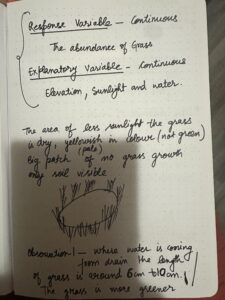 Response Variable - Continuous
The abundance of Grass
Explanatory Variable - Continuous
Elevation, Sunlight and water.
The area of less sunlight the grass
is dry, yellowish in colour (not green)
(pale)
Big patch of no grass growth
only soil visible
Observation! - where water is coming
from drain the length
of grass is around 6cm to 10cm.
The grass is more greener